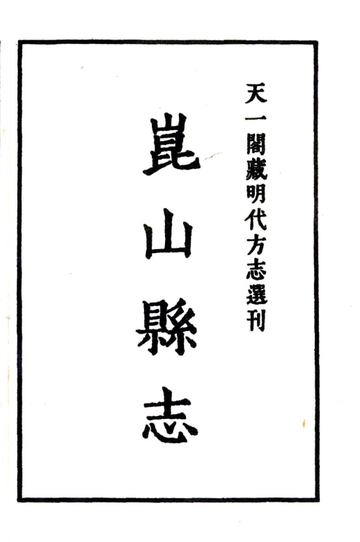 天一閣藏明代方志選刊
崑山縣志